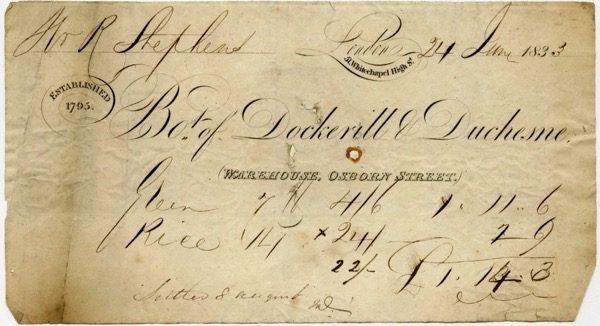 Mr R Stephens London 24 June 1833
51 Whitechapel High St.
ESTABLISHED
1795.
Bot. of Dockerill & Duchesne.
(WAREHOUSE, OSBORN STREET.)
Green 7 lb 4/6 1 . 11 .. 6
Rice 14 × 24/ 2 9
22/- £1 . 14 . 3
Settled 8 august